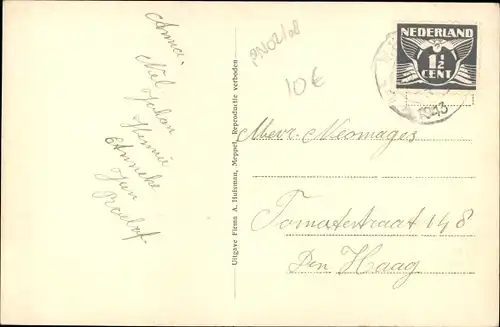 Annie.
Nel
Johan
Hennie
Anneke
Jien
Roelof
Uitgave Firma A. Huisman, Meppel, Reproductie verboden
PN02/08
10€
NEDERLAND
1½
CENT
1943
Mevr.
Tomatestraat 148
Den Haag